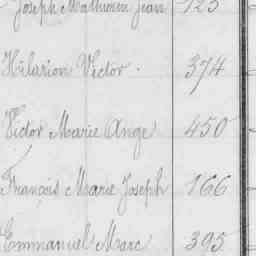 Joseph Mathurin Jean 125
Hilarion Victor. 374
Victor Marie Ange 450
Français Marie Joseph 166
Emmanuel Marc 395